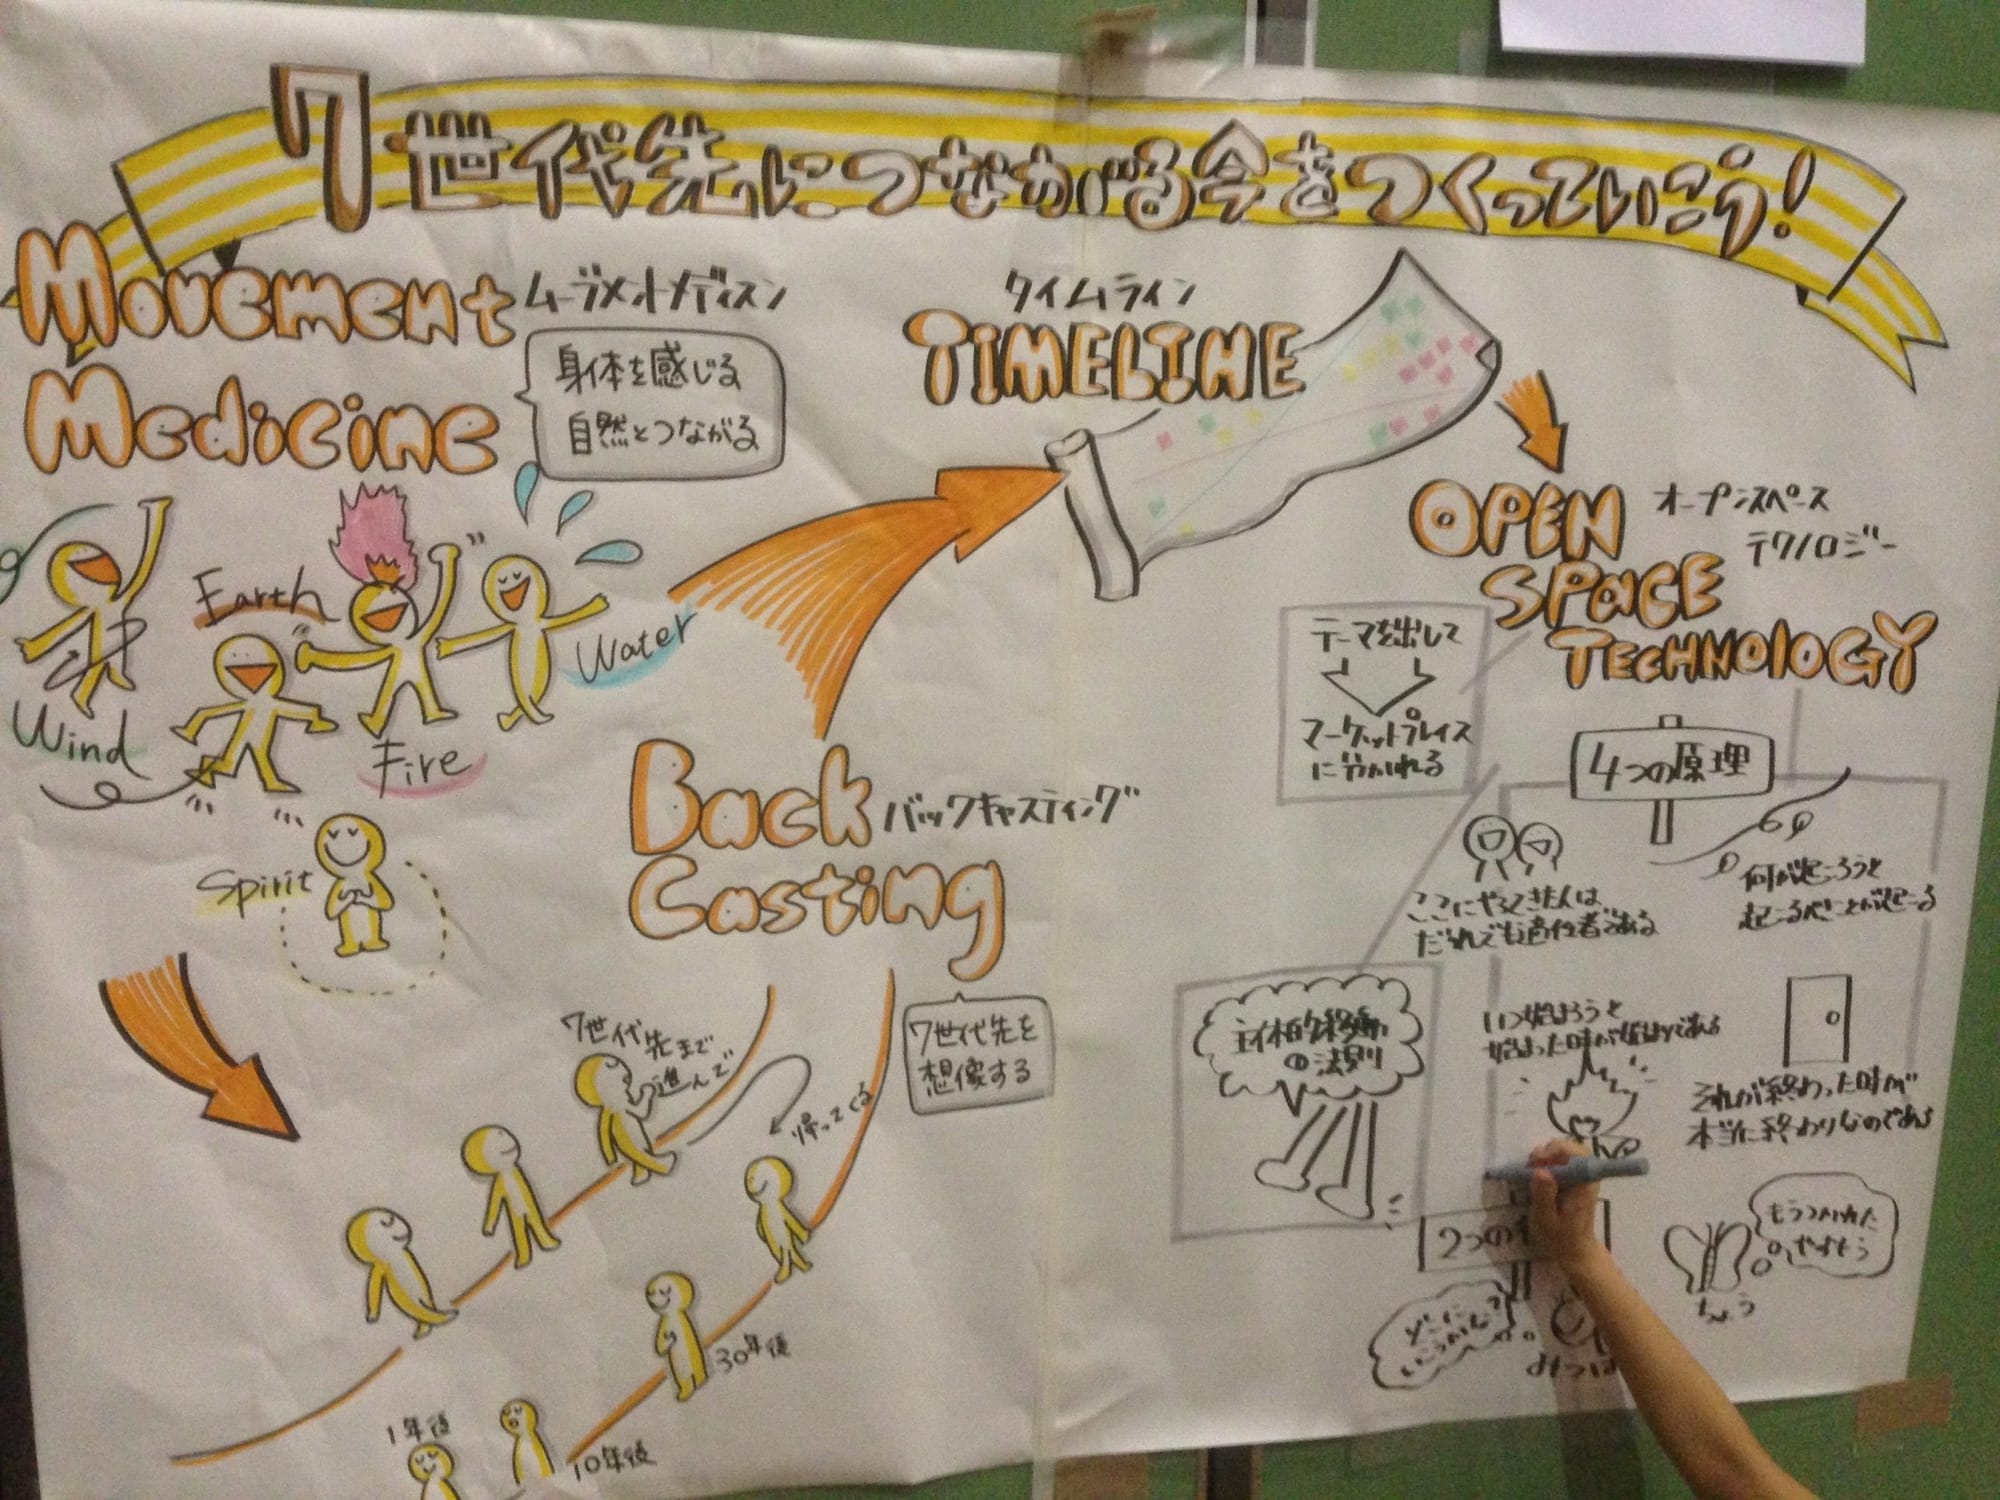 7世代先につながる今をつくっていこう!
Movement
Medicine
ムーブメントメディスン
身体を感じる
自然とつながる
Wind
Earth
Fire
Water
Spirit
Back
Casting
バックキャスティング
7世代先を
想像する
7世代先まで
進んで
帰ってくる
1年後
10年後
30年後
タイムライン
TIMELINE
OPEN
SPACE
TECHNOLOGY
オープンスペース
テクノロジー
テーマを出して
マーケットプレイス
に分かれる
4つの原理
ここにやってきた人は
だれでも適任者である
何が起ころうと
起こるべきことが起こる
いつ始まろうと
始まった時が始まりである
それが終わった時が
本当に終わりなのである
主体的移動
の法則
2つの
どこに
いこうかな?
みつば
もうつかれた
やすもう
ちょう